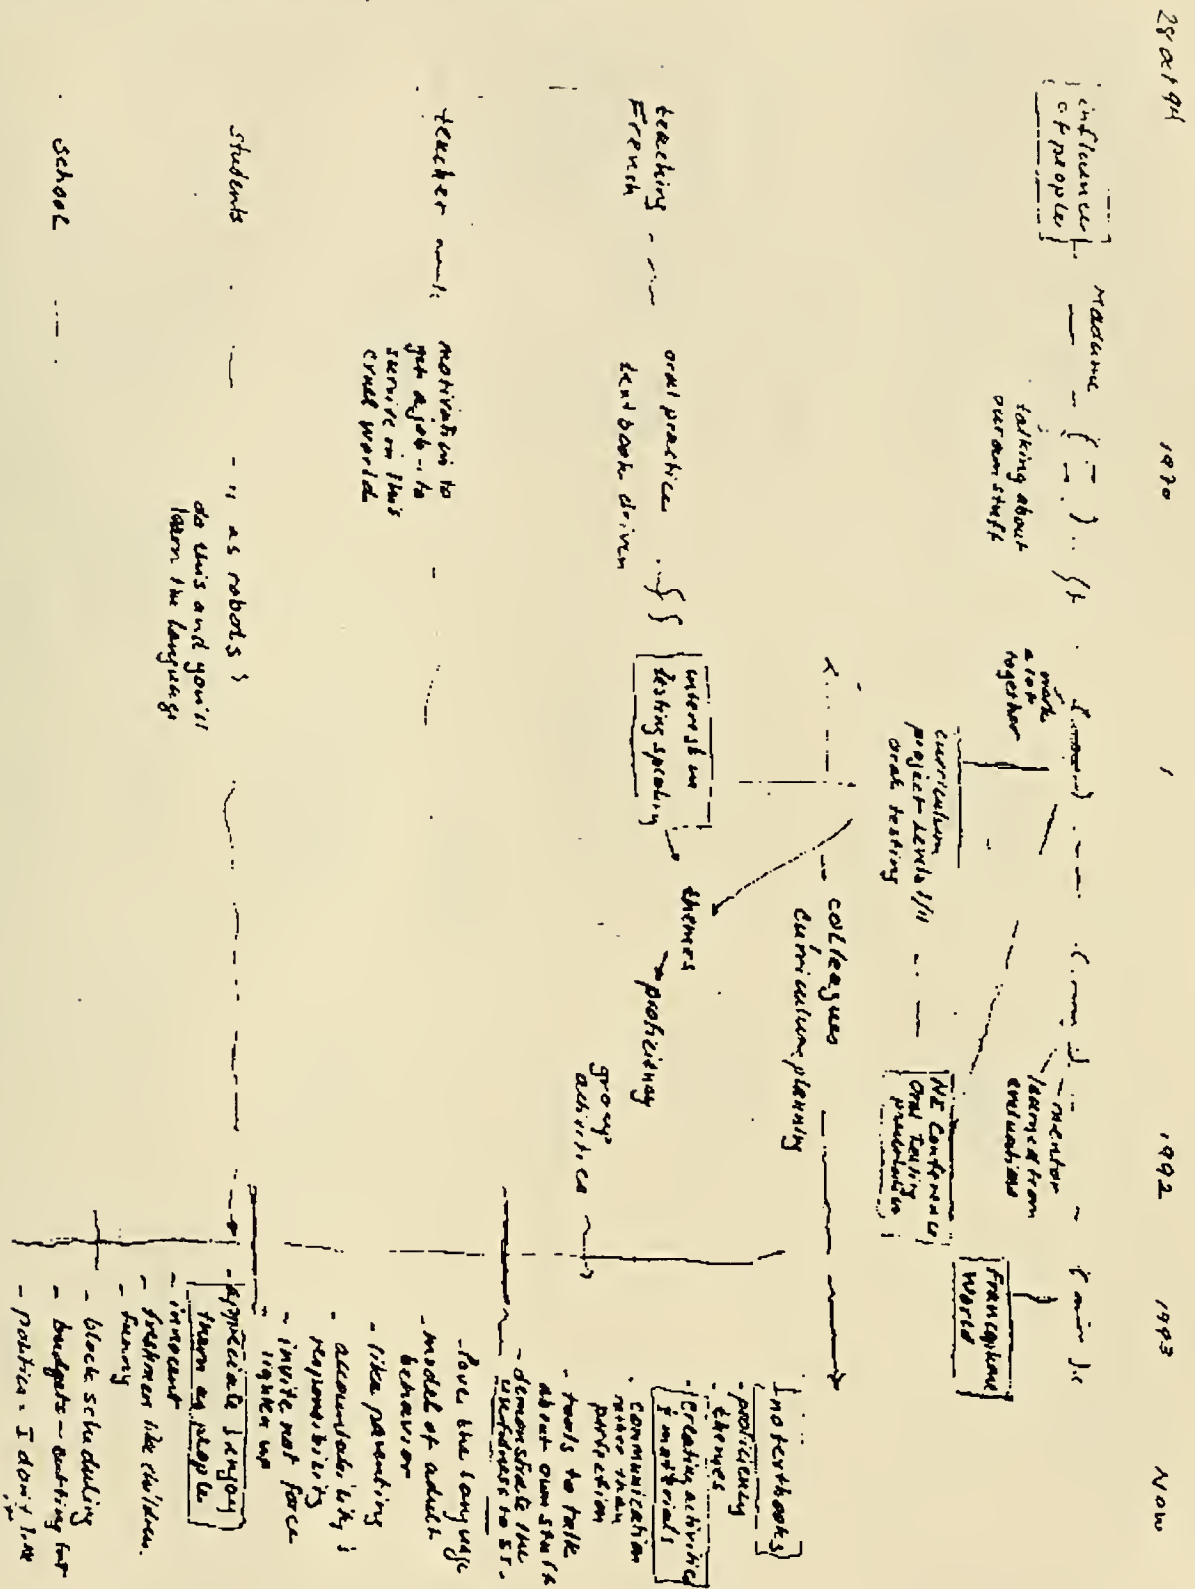 28 oct 94
1970
1
1992
1993
Now
influence
of people
Madame
talking about
our own stuff
work
a lot
together
mentor
learned from
evaluations
Francophone
World
curriculum
project Levels I/II
oral testing
NE Conference
Oral Testing
presentation
colleagues
curriculum planning
teaching
French
oral practice
textbook driven
interest in
testing speaking
themes
proficiency
group
activities
no textbooks
- proficiency
- themes
- creating activities
& materials
- communication
rather than
perfection
- tools to talk
about own stuff
- demonstrate the
usefulness to st.
teacher
motivation to
get a job - to
survive in this
cruel world
- love the language
- model of adult
behavior
- like parenting
- accountability &
responsibility
- invite not force
- lighten up
students
as robots
do this and you'll
learn the language
- appreciate & enjoy
them as people
- innocent
- freshmen like children
- funny
school
- block scheduling
- budgets - cutting for
- politics - I don't like